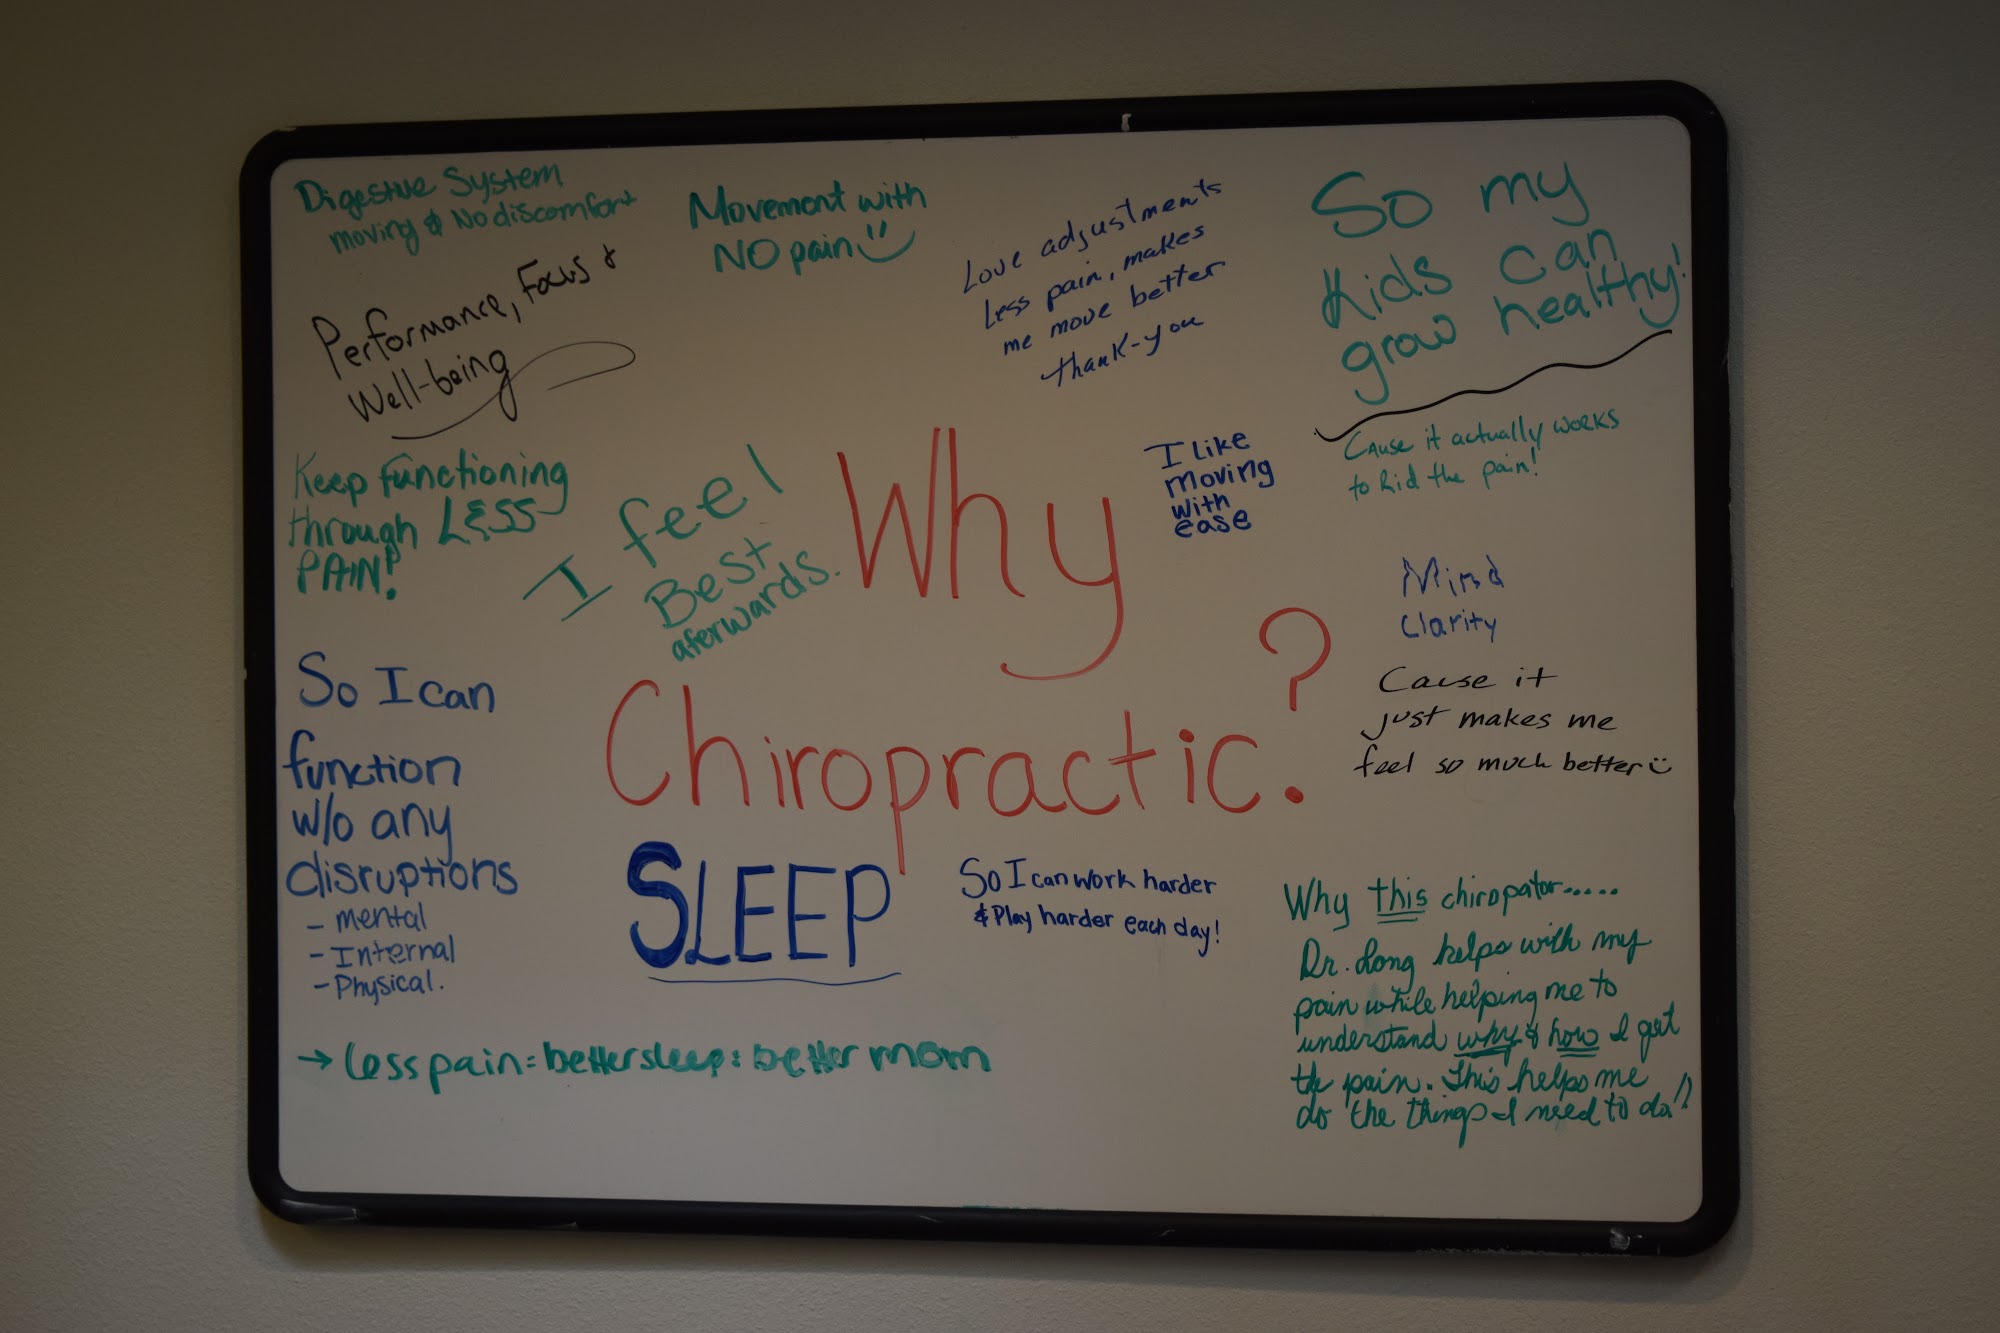 Digestive System
moving & No discomfort
Movement with
NO pain
Love adjustments
Less pain, makes
me move better
thank-you
So my
kids can
grow healthy!
Performance, Focus &
Well-being
Cause it actually works
to rid the pain!
I like
moving
with
ease
Keep functioning
through LESS
PAIN!
I feel
Best
aferwards.
Why
Chiropractic?
Mind
clarity
Cause it
just makes me
feel so much better
So I can
function
w/o any
disruptions
- mental
- Internal
- Physical.
SLEEP
So I can work harder
& Play harder each day!
Why this chiropator.....
Dr. Long helps with my
pain while helping me to
understand why & how I get
the pain. This helps me
do the things I need to do!!
→ less pain = better sleep = better mom